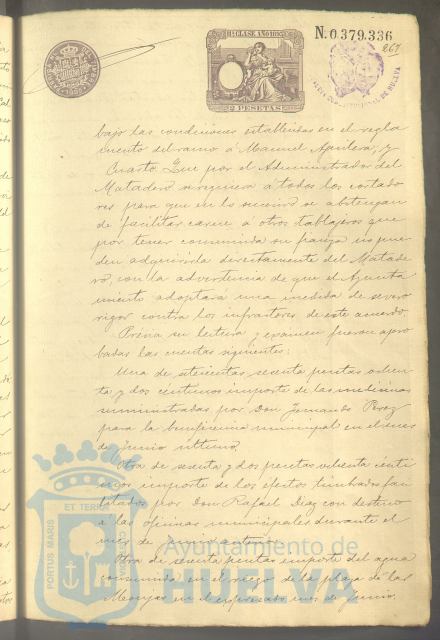 11ª CLASE AÑO 1895
2 PESETAS
N.0.379.336
267
bajo las condiciones establecidas en el regla
mento del ramo á Manuel Aguilera; y
Cuarto Que por el Administrador del
Matadero se requiera á todos los cortado
res para que en lo sucesivo se abstengan
de facilitar carne á otros tablajeros que
por tener consumida su fianza no pue
den adquirirla directamente del Matade
ro, con la advertencia de que el Ayunta
miento adoptará una medida de severo
rigor contra los infractores de este acuerdo.
Prévia su lectura y examen fueron apro
badas las cuentas siguientes:
Una de setenta pesetas ochen
ta y dos céntimos importe de las medicinas
suministradas por Don Fernando Perez
para la beneficencia municipal en el mes
de Junio último.
Otra de sesenta y dos pesetas ochenta cénti
mos importe de los efectos timbrados faci
litados por Don Rafael Diaz con destino
á las oficinas municipales durante el
mes de Junio
Otra de sesenta pesetas importe del agua
consumida en el riego de la plaza de las
Monjas en el expresado mes de Junio.
PORTUS MARIS ET TERRÆ
Ayuntamiento de
HUELVA